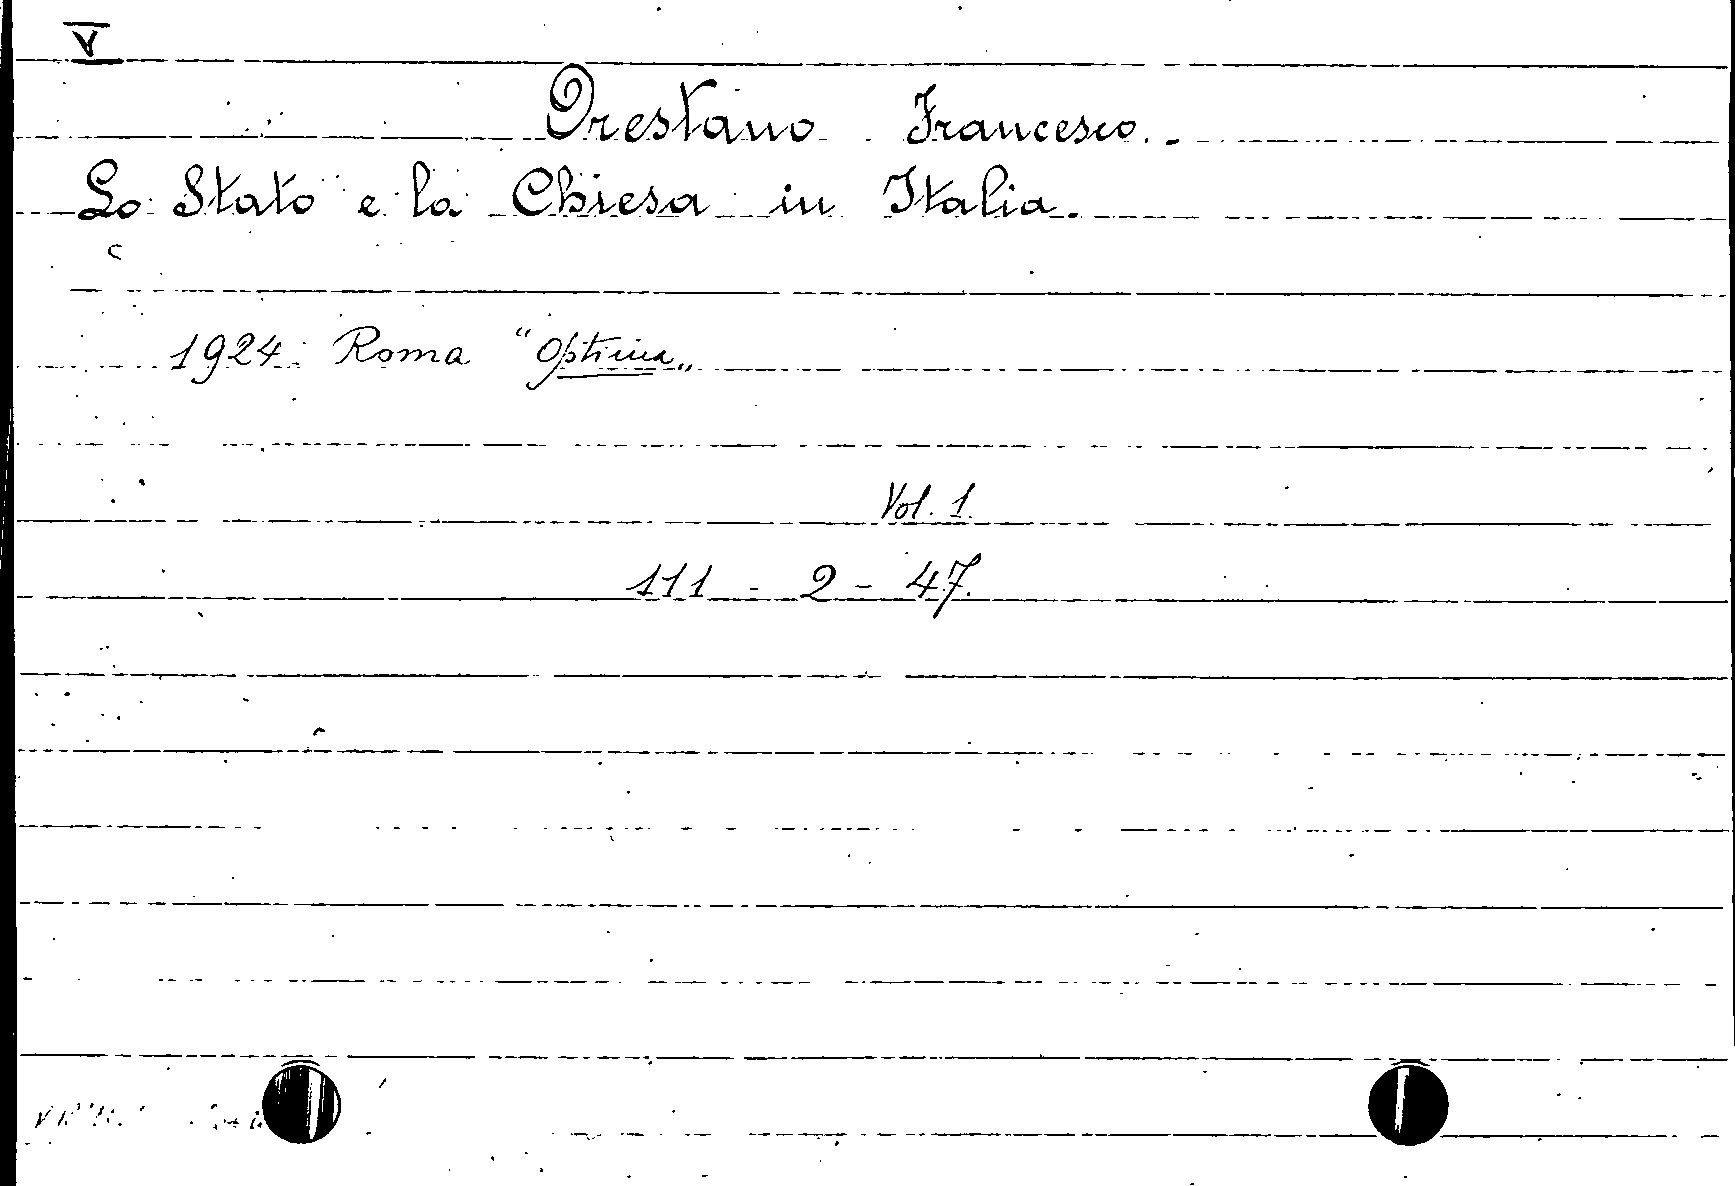 V
Orestano Francesco.-
Lo Stato e la Chiesa in Italia.
1924. Roma "Optima„
Vol. 1.
111 - 2 - 47.